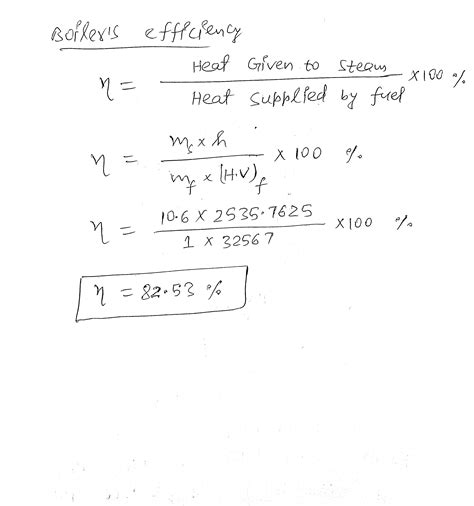 Boiler's efficiency
η = Heat Given to steam / Heat supplied by fuel × 100 %
η = ms × h / mf × (H.V)f × 100 %
η = 10.6 × 2535.7625 / 1 × 32567 × 100 %
η = 82.53 %